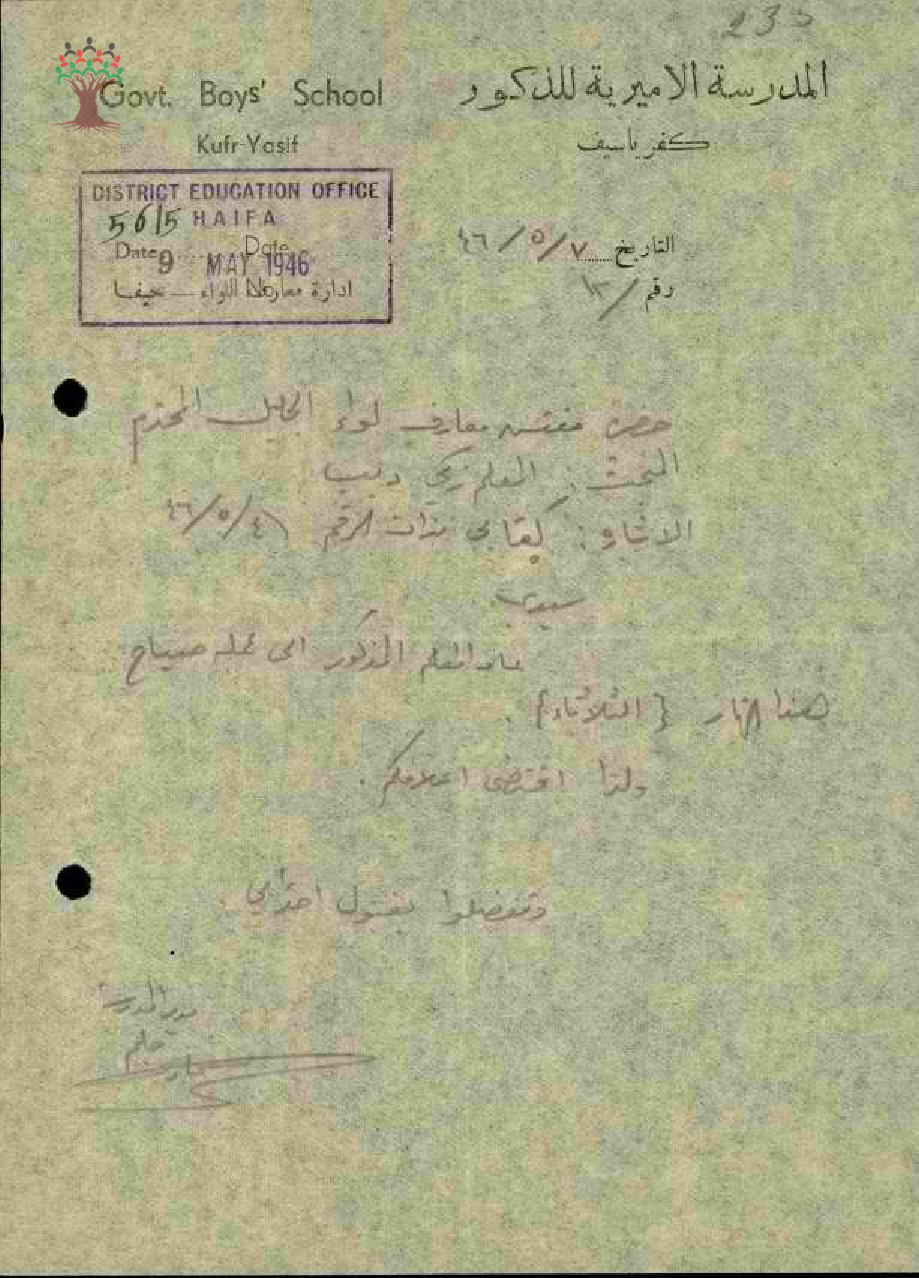 235
Govt. Boys' School
Kufr-Yasif
المدرسة الاميرية للذكور
كفر ياسيف
DISTRICT EDUCATION OFFICE
5615 HAIFA
Date 9 MAY 1946 Date
ادارة معارف اللواء — حيفا
No
التاريخ ٤٦/٥/٧
رقم /
حضرة مفتش معارف لواء الجليل المحترم
البحث: المعلم زكي ديب
الاشارة: كتابي بذات الرقم ٤٦/٥/
سيدي
عاد المعلم المذكور الى عمله صباح
هذا النهار {الثلاثاء}.
ولذا اقتضى اعلامكم.
وتفضلوا بقبول احترامي.
مدير المدرسة